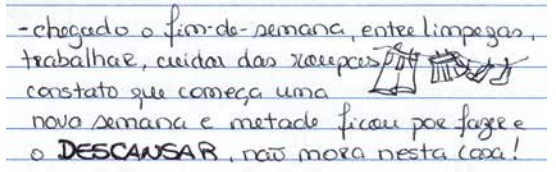 -chegado o fim-de-semana, entre limpezas,
trabalhar, cuidar das roupas
constato que começa uma
nova semana e metade ficou por fazer e
o DESCANSAR, não mora nesta casa!